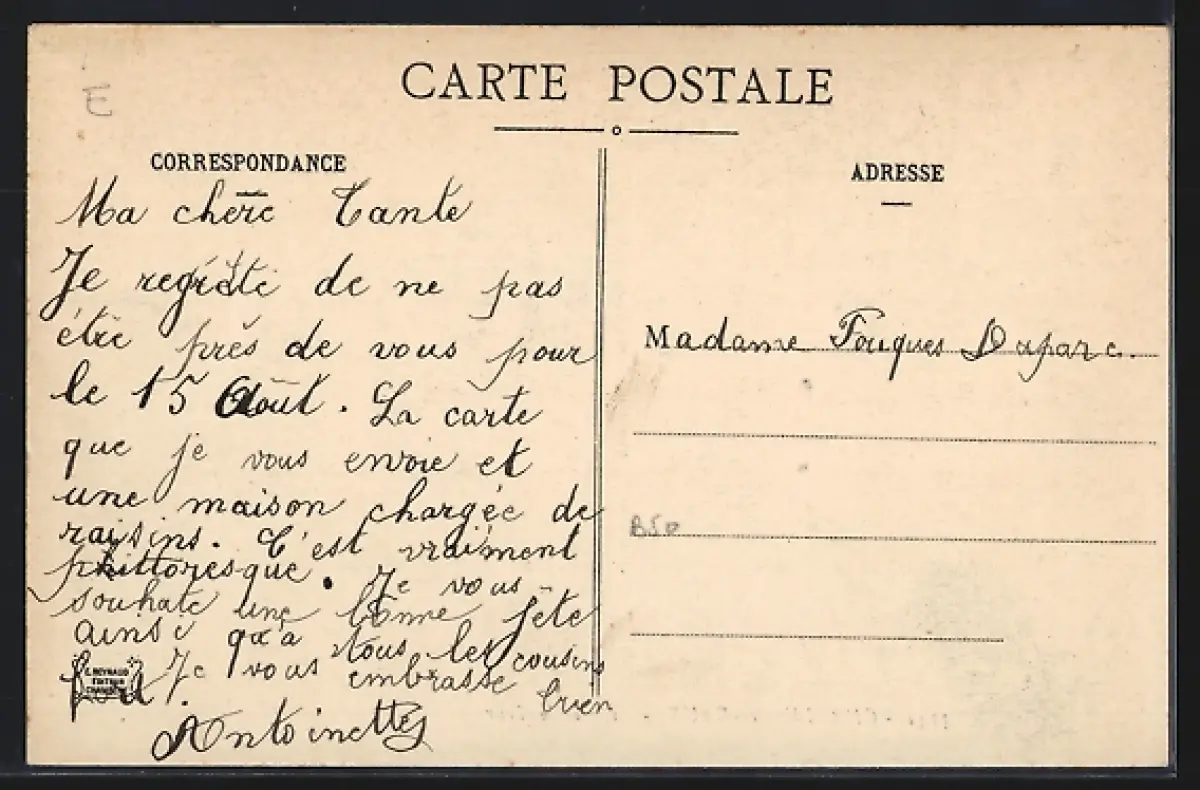 E
CARTE POSTALE
CORRESPONDANCE
Ma chère Tante
Je regrète de ne pas
être près de vous pour
le 15 Août. La carte
que je vous envoie et
une maison chargée de
raisins. C'est vraiment
phittoresque. Je vous
souhate une bonne fête
ainsi qu'à tous les cousins
Je vous embrasse bien
fort.
Antoinette
E. REYNAUD
EDITEUR
CHAMBÉRY
ADRESSE
Madame Fouques Duparc.
B50